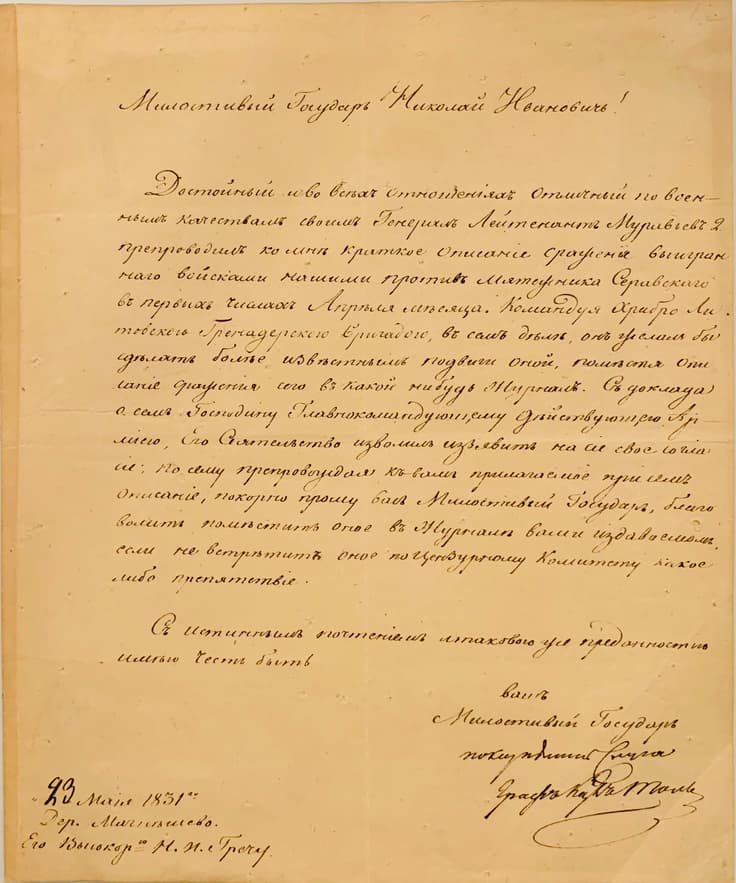 Милостивый Государь Николай Ивановичъ!
Достойный и во всѣхъ отношеніяхъ отличный по воен-
нымъ качествамъ своимъ Генералъ Лейтенантъ Муравьевъ 2
препроводилъ ко мнѣ краткое описаніе сраженія выигран
наго войсками нашими противъ мятежника Серавскаго
въ первыхъ числахъ Апрѣля мѣсяца. Командуя храбро Ли-
товскою Гренадерскою бригадою, въ семъ дѣлѣ, онъ желалъ бы
сдѣлать болѣе извѣстнымъ подвиги оной, помѣстя опи
саніе сраженія сего въ какой нибудь Журналъ. Съ доклада
о семъ Господину Главнокомандующему дѣйствующею Ар-
міею, Его Сіятельство изволилъ изъявить на сіе свое согла
сіе; по сему препровождая къ вамъ прилагаемое при семъ
описаніе, покорно прошу васъ Милостивый Государь, благо
волить помѣстить оное въ Журналъ вами издаваемомъ,
если не встрѣтитъ оное по Цензурному Комитету какое
либо препятствіе.
Съ истиннымъ почтеніемъ и таковою же преданностію
имѣю честь быть
вашъ
Милостивый Государь
покорнѣйшій слуга
Графъ К. Толь
"23 Мая 1831го
Дер. Магнышево.
Его Высокор:ю Н. И. Гречу.